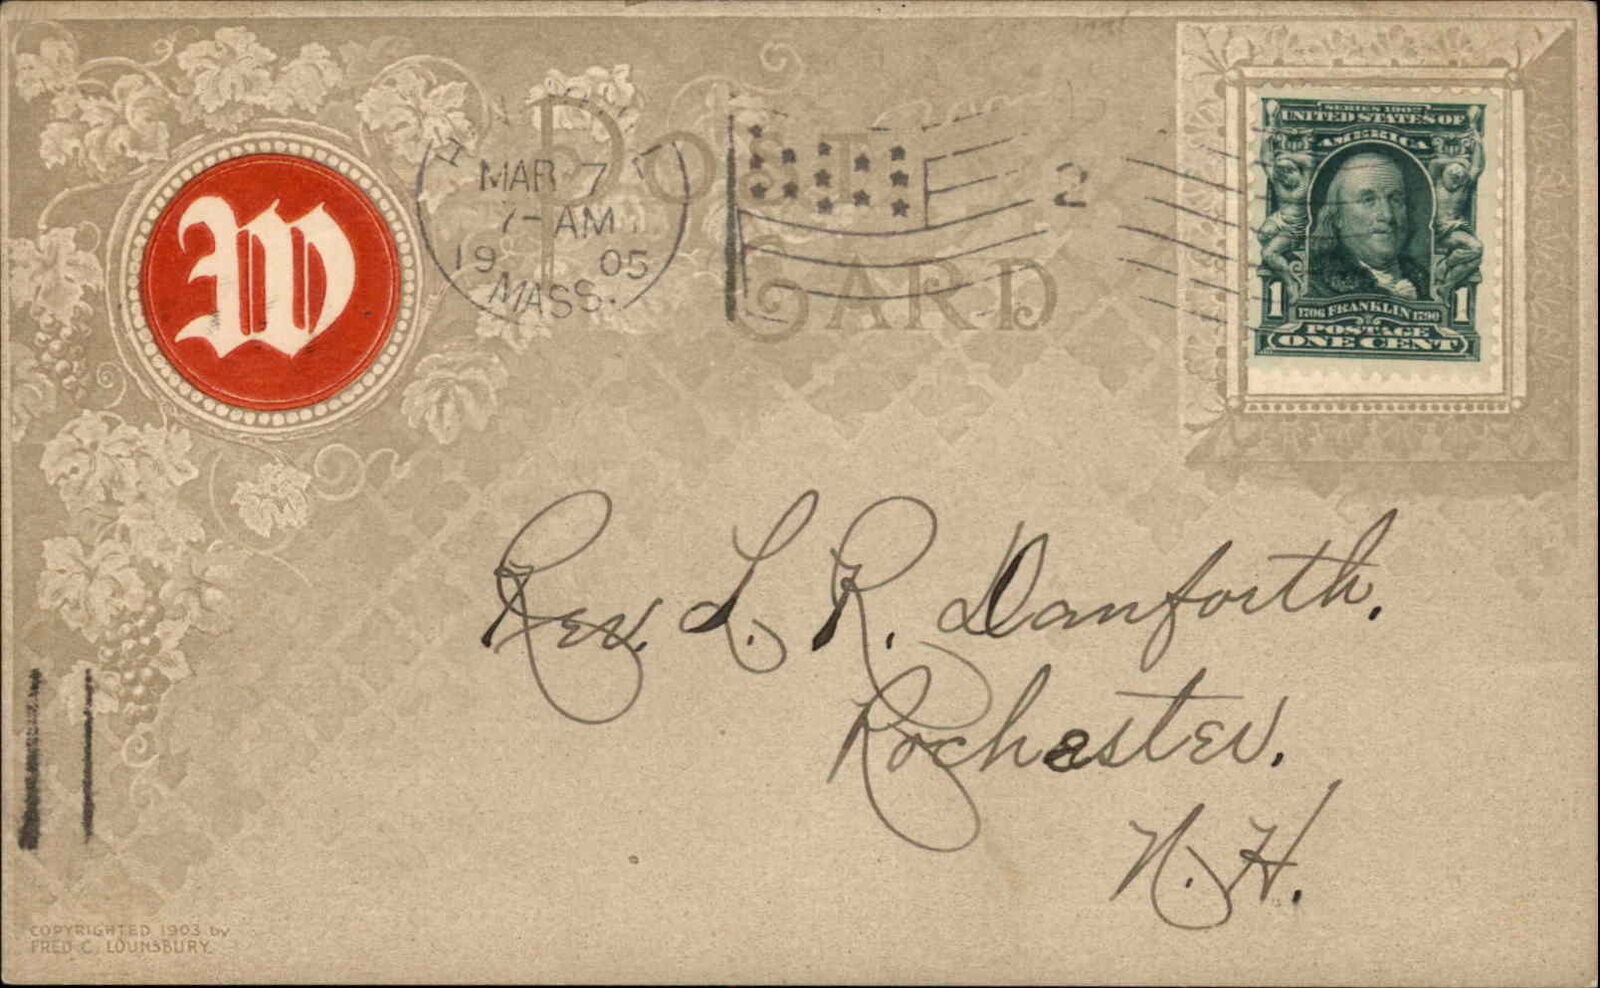 W
POST
CARD
MAR 7
7-AM
1905
MASS.
2
SERIES 1902
UNITED STATES OF
AMERICA
1 1706 FRANKLIN 1790 1
POSTAGE
ONE CENT
Rev. L. R. Danforth.
Rochester.
N. H.
COPYRIGHTED 1903 by
FRED C. LOUNSBURY.